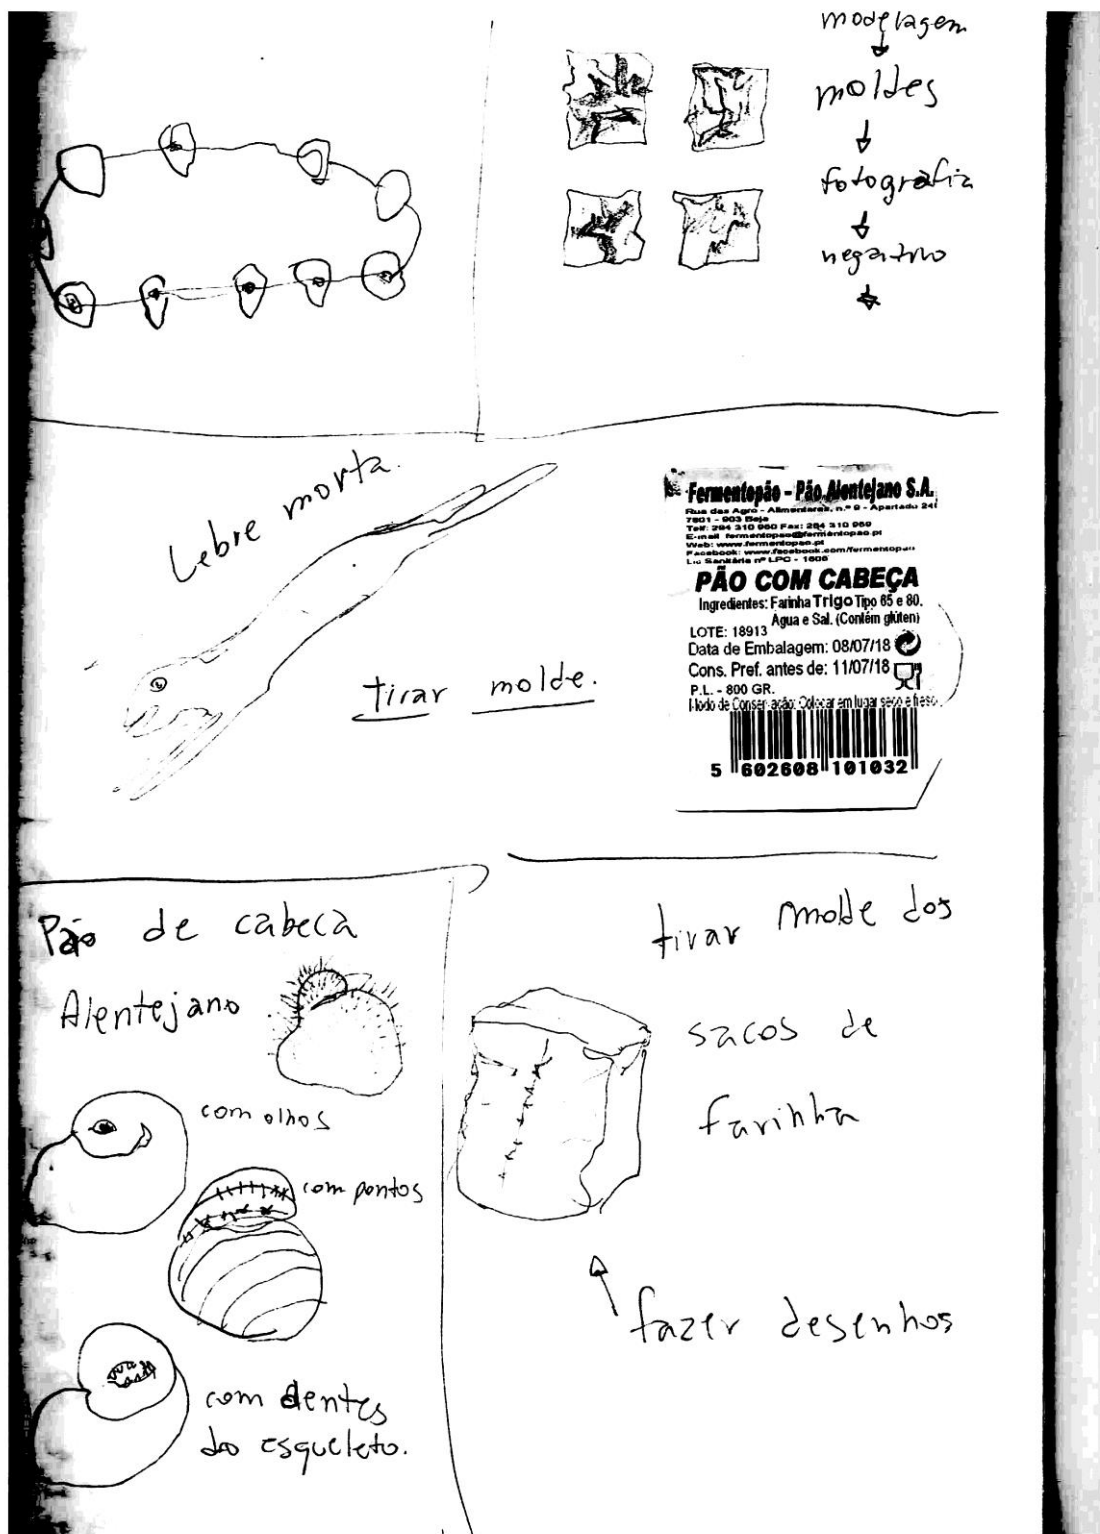 modelagem
moldes
fotografia
negativo
Lebre morta.
tirar molde.
Fermentopão - Pão Alentejano S.A.
Rua das Agro - Alimentares, n.º 9 - Apartado 241
7801 - 903 Beja
Telf: 284 310 960 Fax: 284 310 969
E-mail fermentopao@fermentopao.pt
Web: www.fermentopao.pt
Facebook: www.facebook.com/fermentopao
Lic Sanitária nº LPC - 1606
PÃO COM CABEÇA
Ingredientes: Farinha Trigo Tipo 65 e 80.
Agua e Sal. (Contém glúten)
LOTE: 18913
Data de Embalagem: 08/07/18
Cons. Pref. antes de: 11/07/18
P.L. - 800 GR.
Modo de Conservação: Colocar em lugar seco e fresco.
5 602608 101032
Pão de cabeca
Alentejano
com olhos
com pontos
com dentes
do esqueleto.
tirar molde dos
sacos de
farinha
fazer desenhos